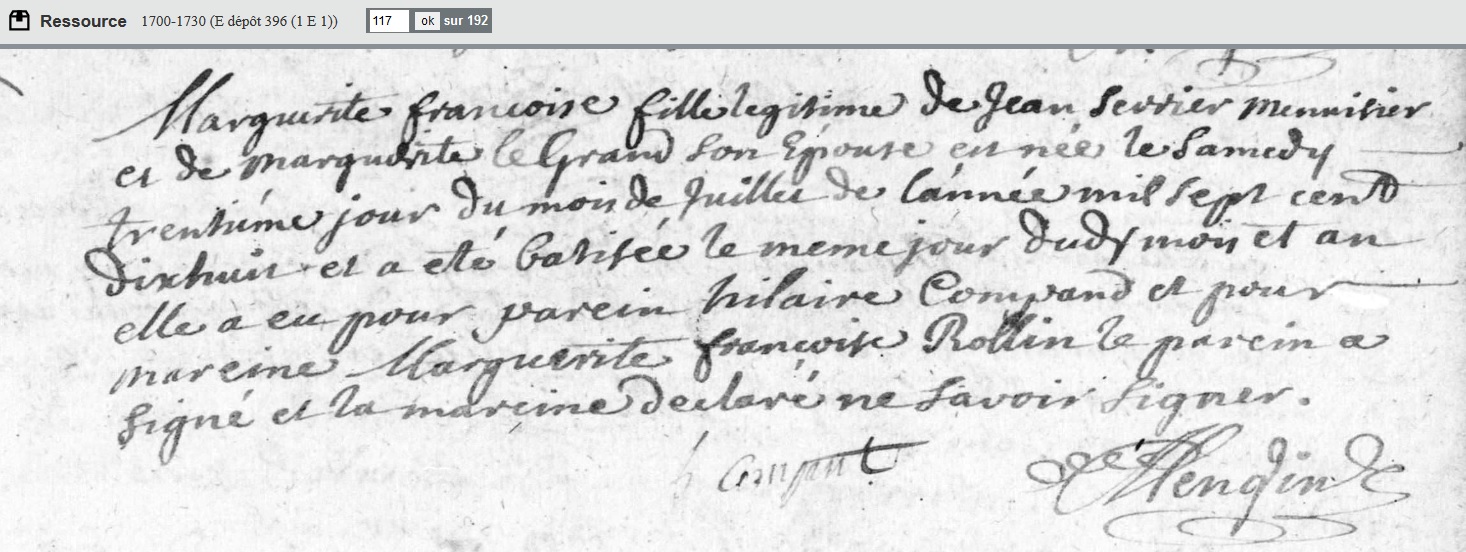 Ressource 1700-1730 (E dépôt 396 (1 E 1)) 117 ok sur 192
Marguerite francoise fille legitime de Jean Serrier menuisier
et de marguerite le Grand son Epouse est née le Samedy
trentiéme jour du mois de Juillet de l'année mil sept cent
dixhuit et a eté batisée le meme jour dudy mois et an
elle a eu pour parein hilaire Compand et pour
mareine Marguerite françoise Rollin le parein a
signé et la mareine declaré ne savoir signer.
h